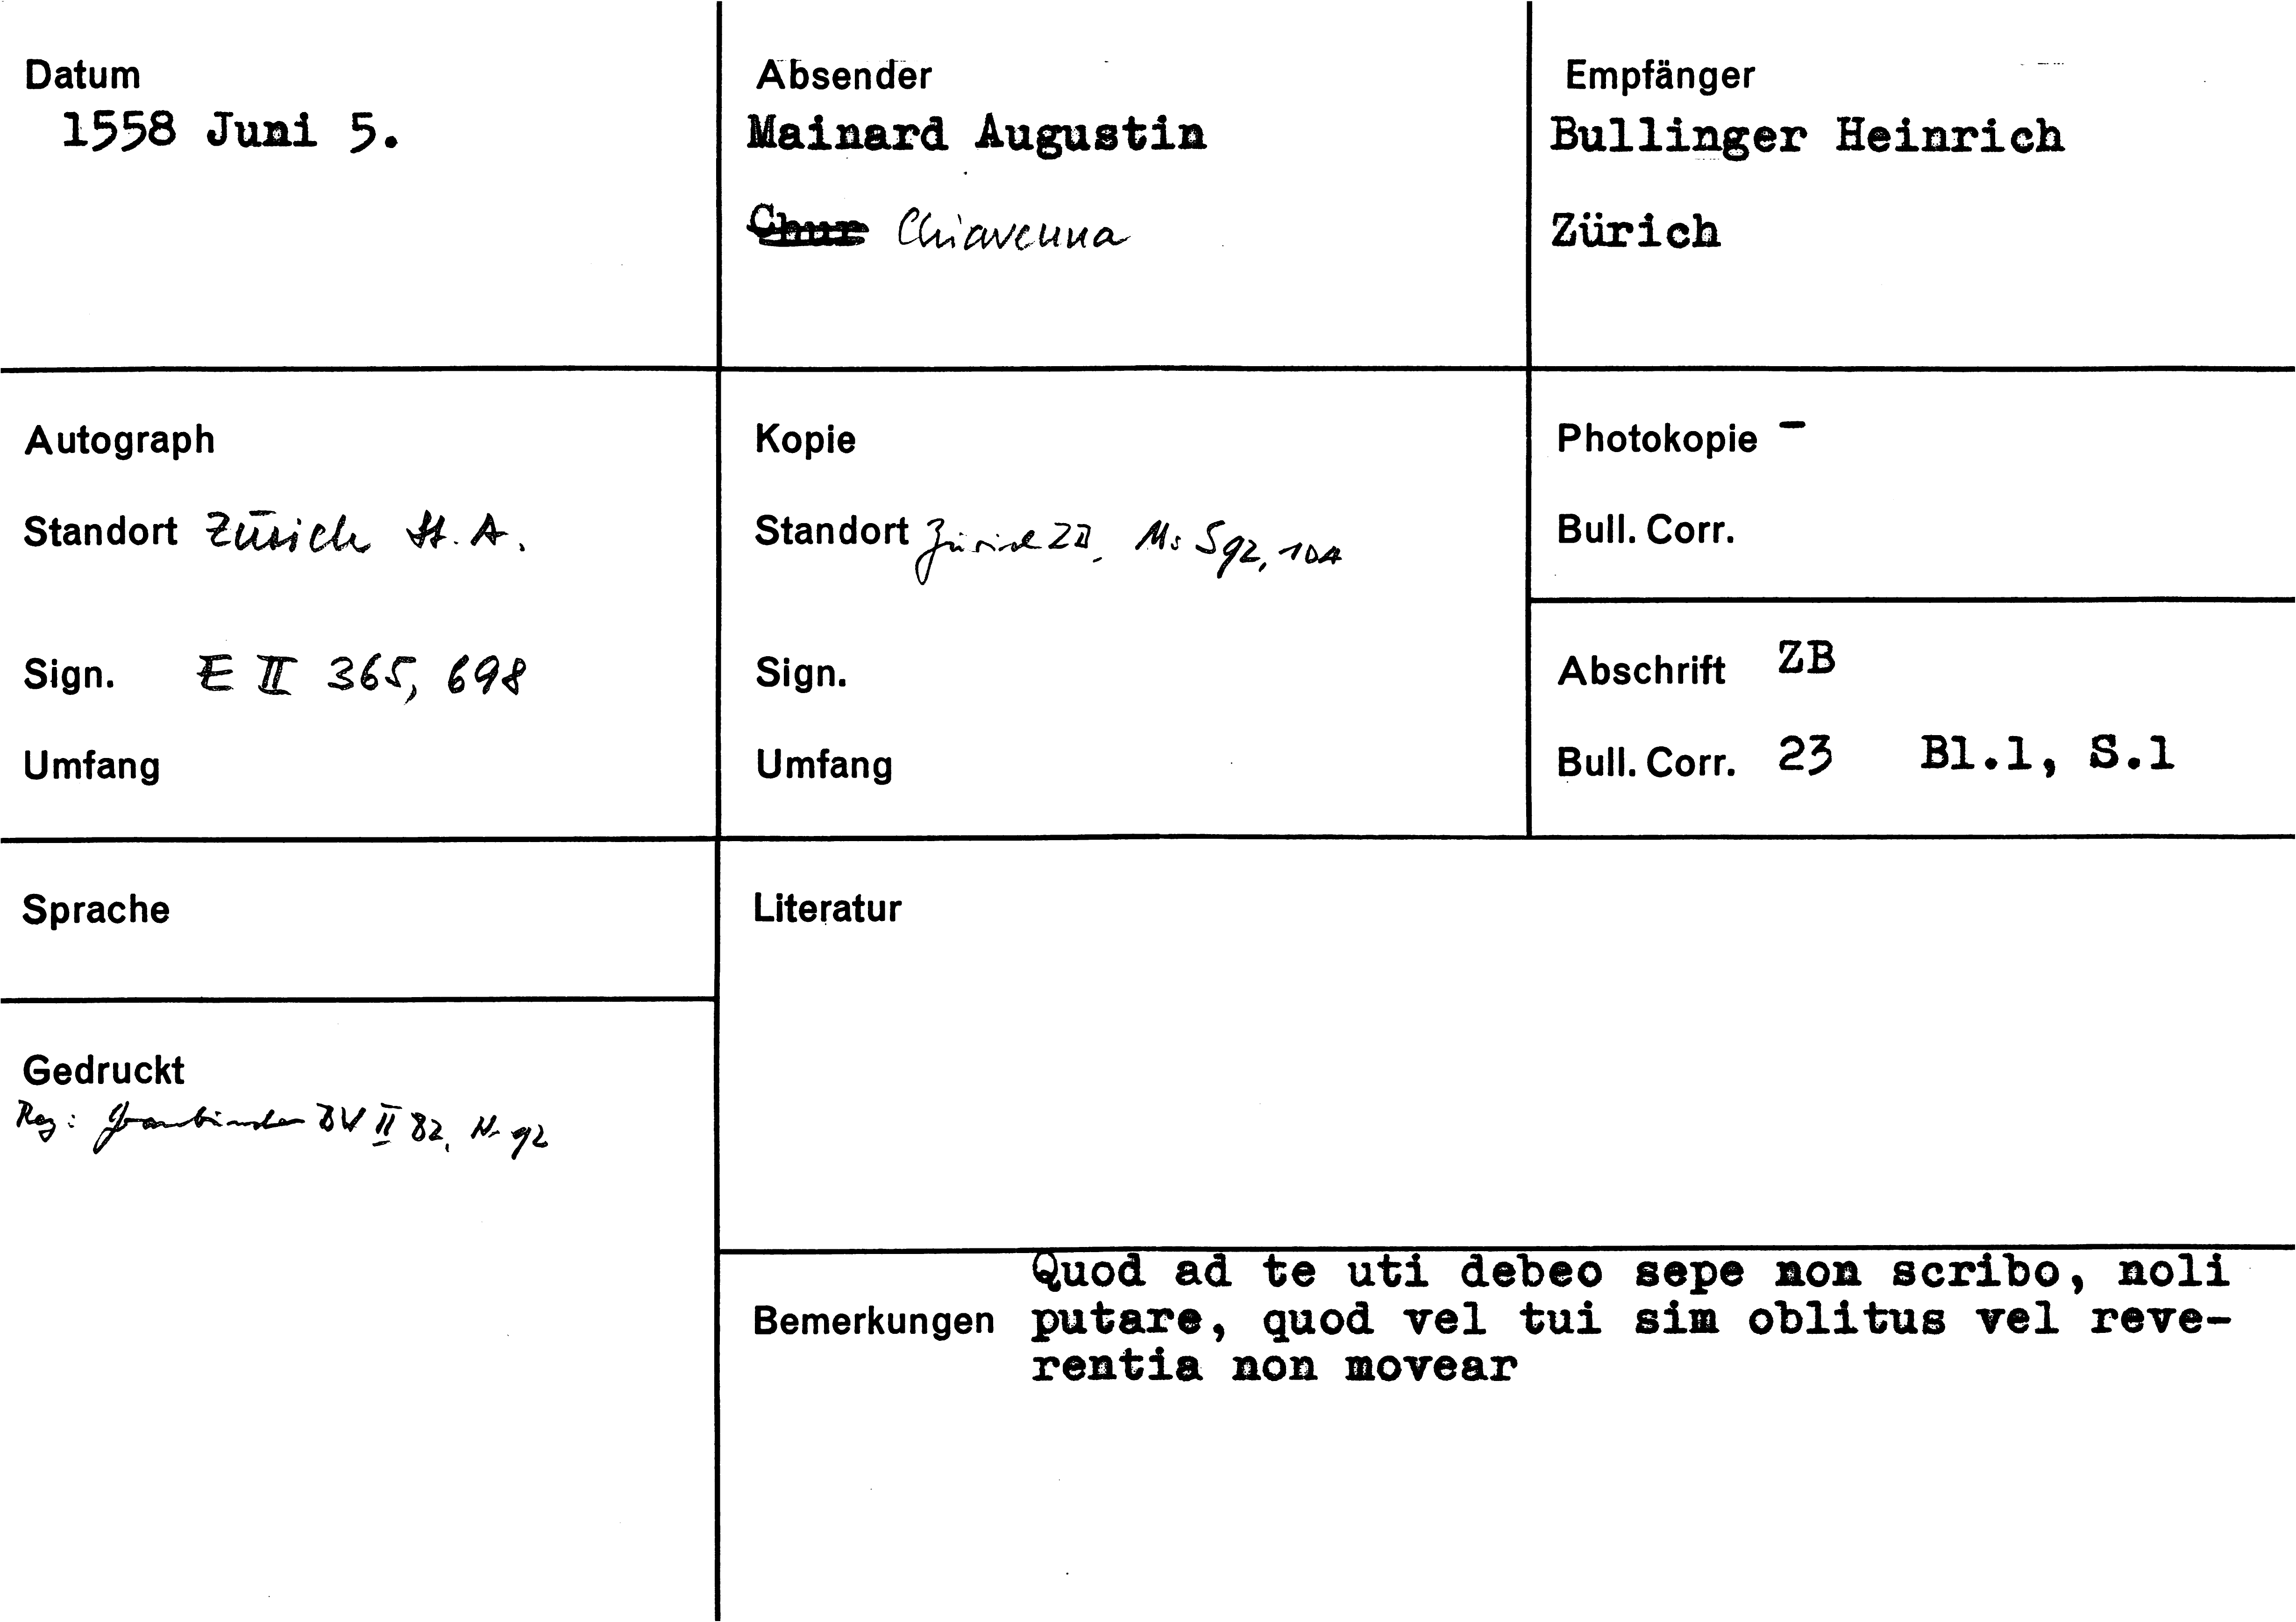 Datum
1558 Juni 5.
Absender
Mainard Augustin
Chur Chiavenna
Empfänger
Bullinger Heinrich
Zürich
Autograph
Standort Zürich St. A.
Sign. E II 365, 698
Umfang
Kopie
Standort Zürich ZB, Ms S 92, 104
Sign.
Umfang
Photokopie -
Bull. Corr.
Abschrift ZB
Bull. Corr. 23 Bl.1, S.1
Sprache
Literatur
Gedruckt
Reg: Graubünden BW II 82, Nr 92
Bemerkungen
Quod ad te uti debeo sepe non scribo, noli
putare, quod vel tui sim oblitus vel reve-
rentia non movear